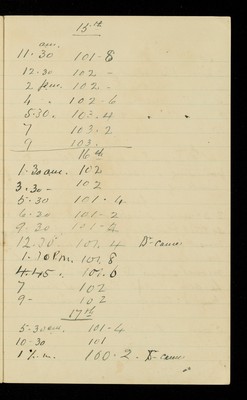 15th
am.
11.30 101-8
12.30 102 -
2 p.m. 102 -
4 . 102-6
5.30 . 103.4
7 103.2
9 103.
16th
1.30 am. 102
3.30 - 102
5.30 101.4.
6.20 101-2
9.30 101-2
12.30 101.4 Dr came.
1.30 P.m. 101.8
4.45 . 101.6
7 102
9- 102
17th
5.30 am. 101-4
10-30 101
1 P.m. 100.2 - Dr came.